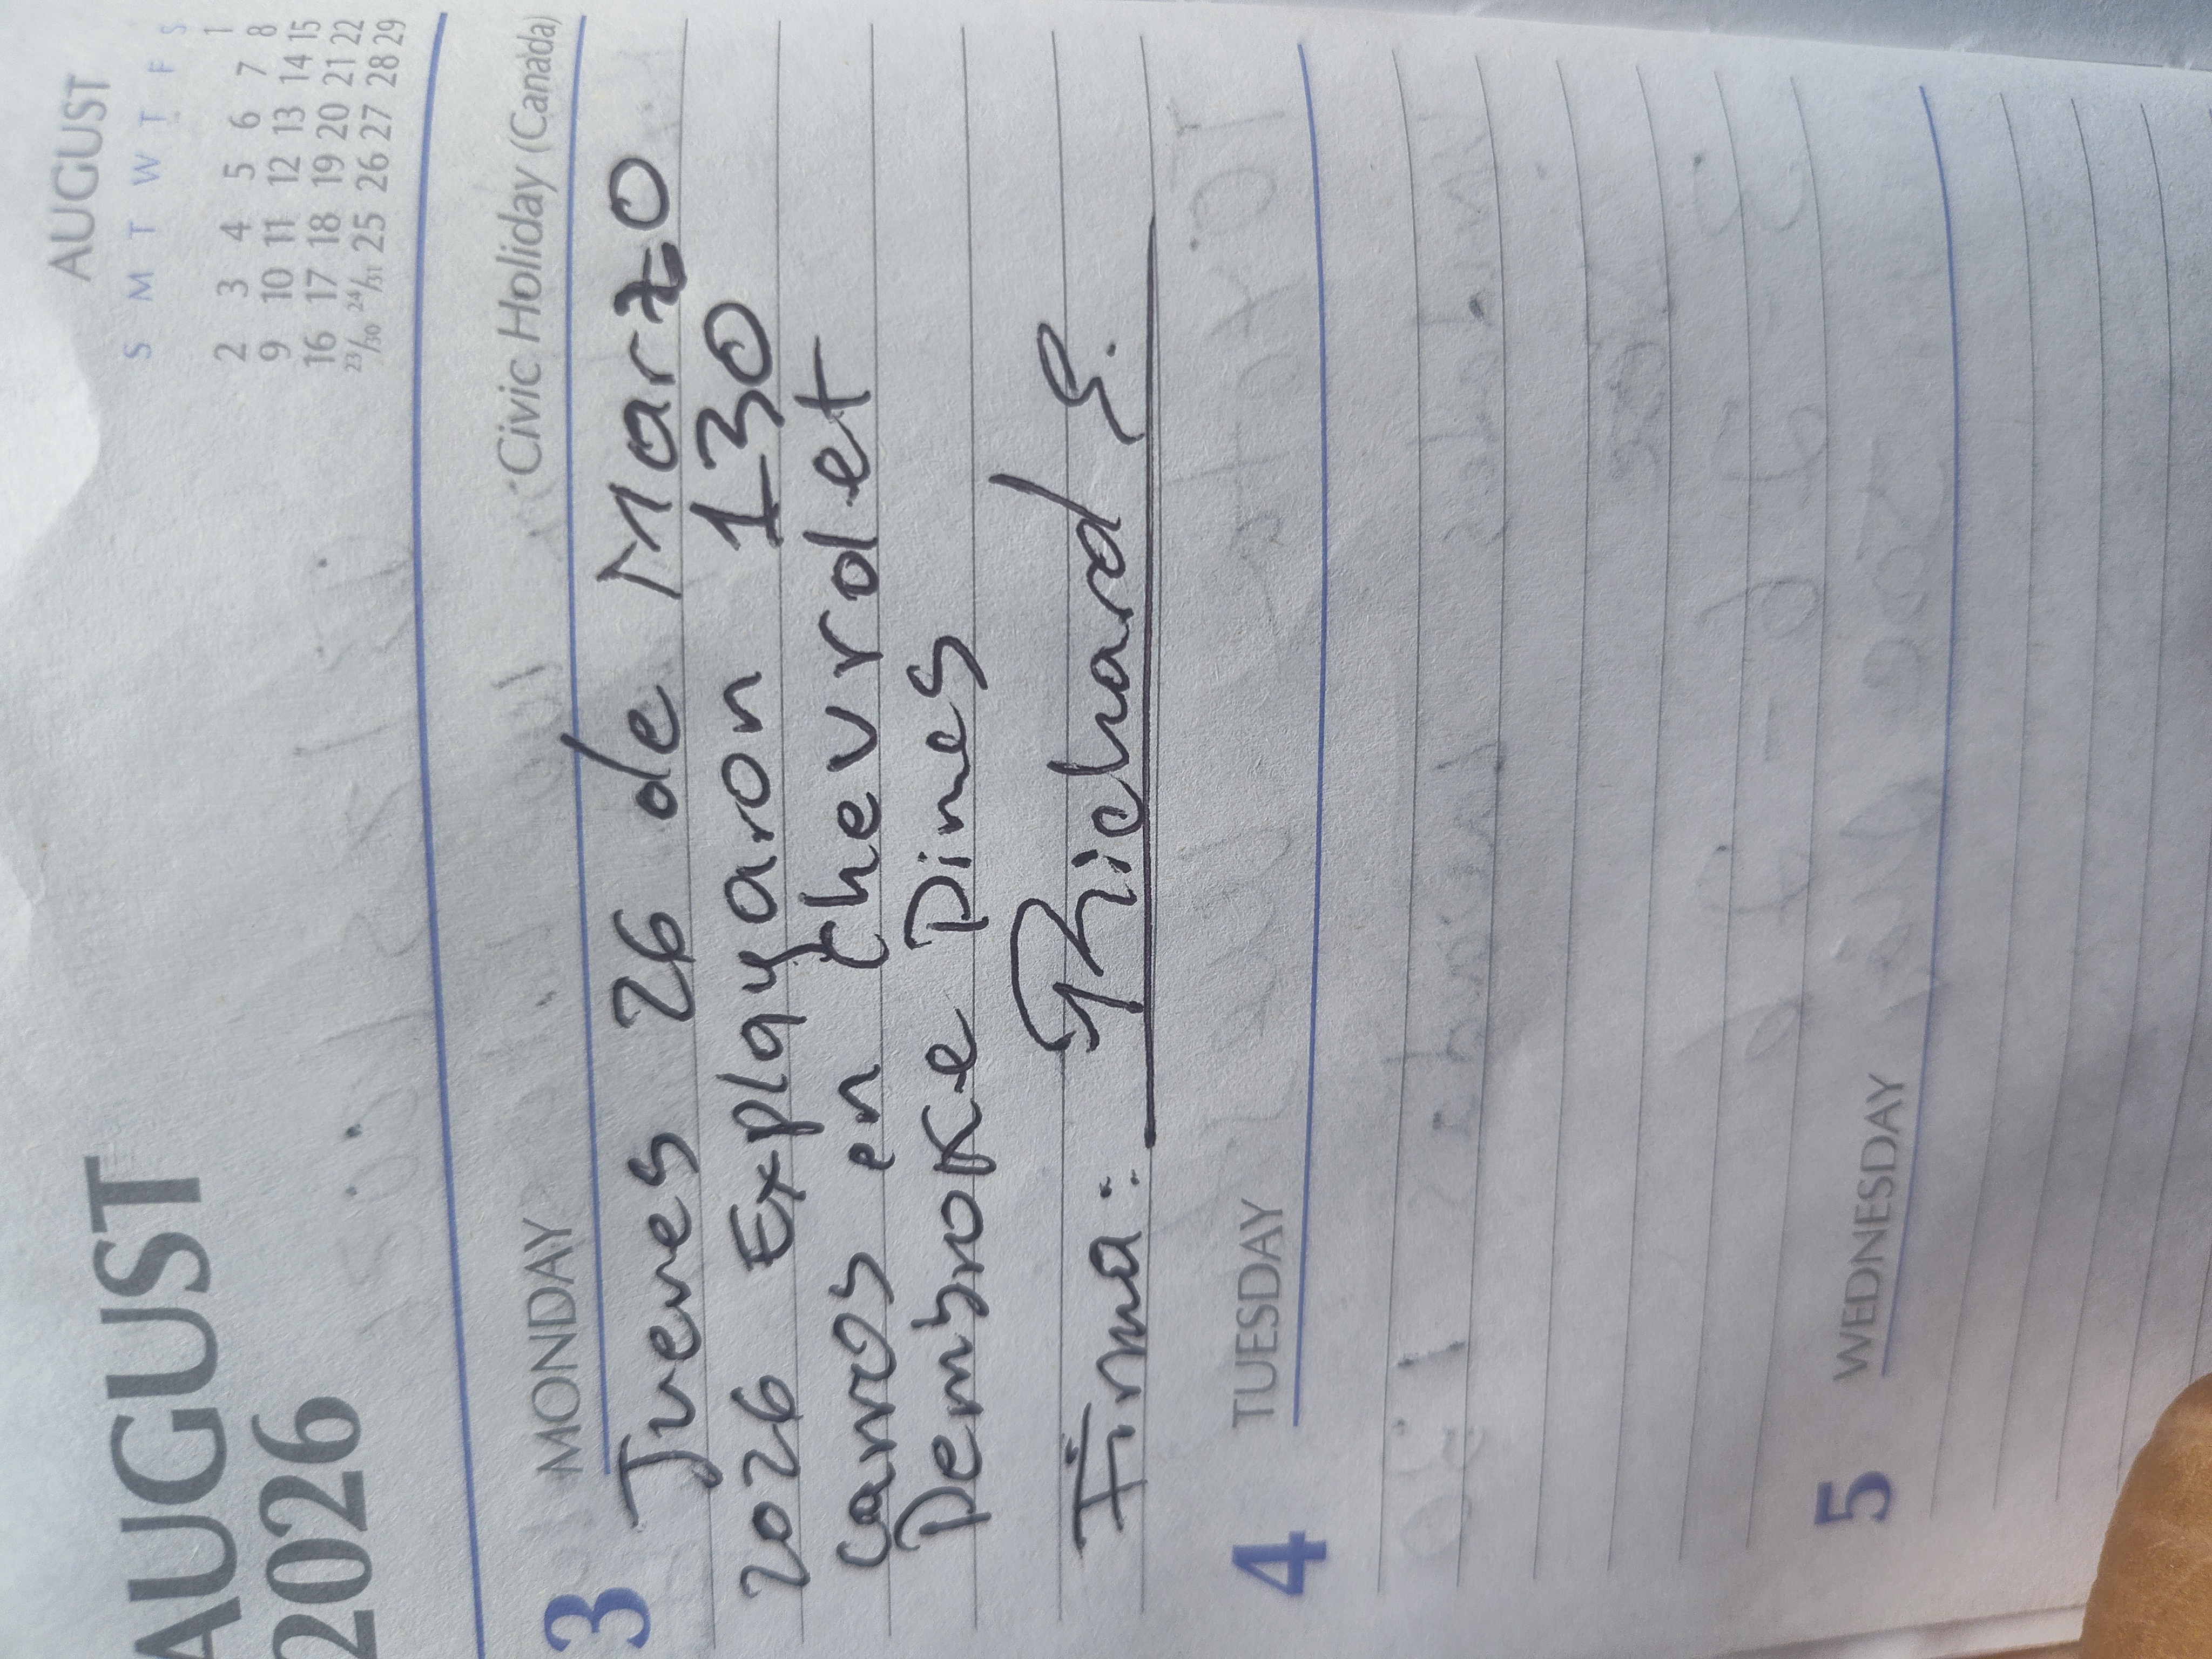 AUGUST
2026
AUGUST
S M T W T F S
1
2 3 4 5 6 7 8
9 10 11 12 13 14 15
16 17 18 19 20 21 22
23/30 24/31 25 26 27 28 29
3 MONDAY (Civic Holiday (Canada)
Jueves 26 de Marzo
2026 Explayaron 130
Carros en Chevrolet
Pembroke Pines
Firma: Richard E.
4 TUESDAY
5 WEDNESDAY